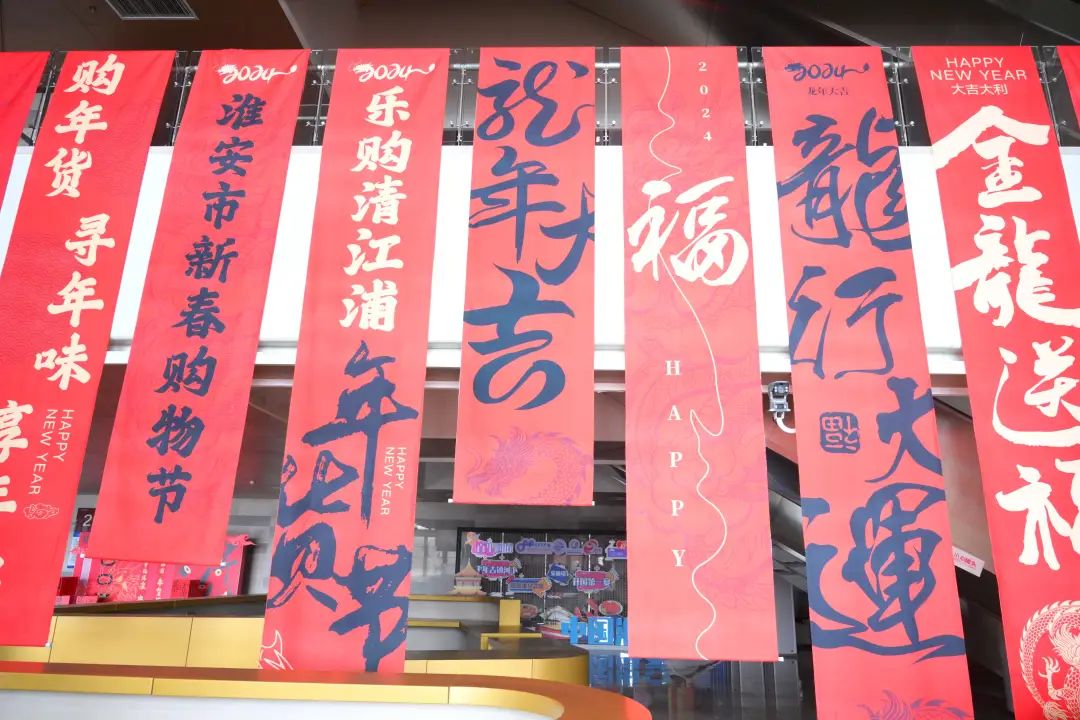 购年货
寻年味
享年
HAPPY
NEW YEAR
2024
淮安市新春购物节
2024
乐购清江浦
年货节
HAPPY
NEW YEAR
龙年大吉
2024
福
HAPPY
2024
龙年大吉
龍行大運
福
HAPPY
NEW YEAR
大吉大利
金龍送福
中国